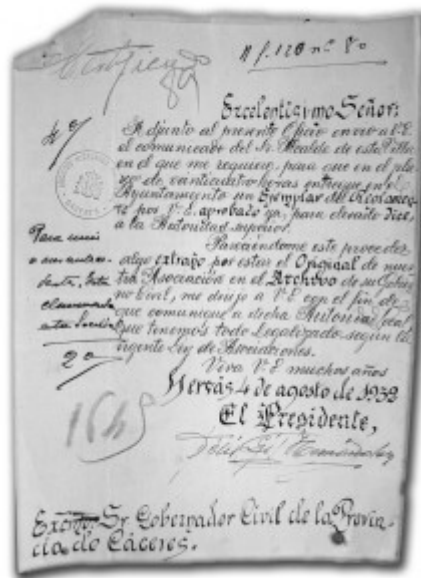 Excelentísymo Señor:
Adjunto al presente Oficio envío a V.E.
el comunicado del Sr. Alcalde de esta Villa
en el que me requiere, para que en el pla-
zo de veinticuatro horas entregue en el
Ayuntamiento un Ejemplar del Reglamen-
to por V.E. aprobado ya, para elevarlo dice,
a la Autoridad superior.
Pareciéndome este proceder
algo extraño por estar el Original de nues-
tra Asociación en el Archivo de su Gobier-
no Civil, me dirijo a V.E con el fin de
que comunique a dicha Autoridad local
que tenemos todo Legalizado según la
vigente Ley de Asociaciones.
Viva V.E muchos años
Hervás 4 de agosto de 1932
El Presidente,
Excmo. Sr Gobernador Civil de la Provin-
cia de Cáceres.
2º
1645